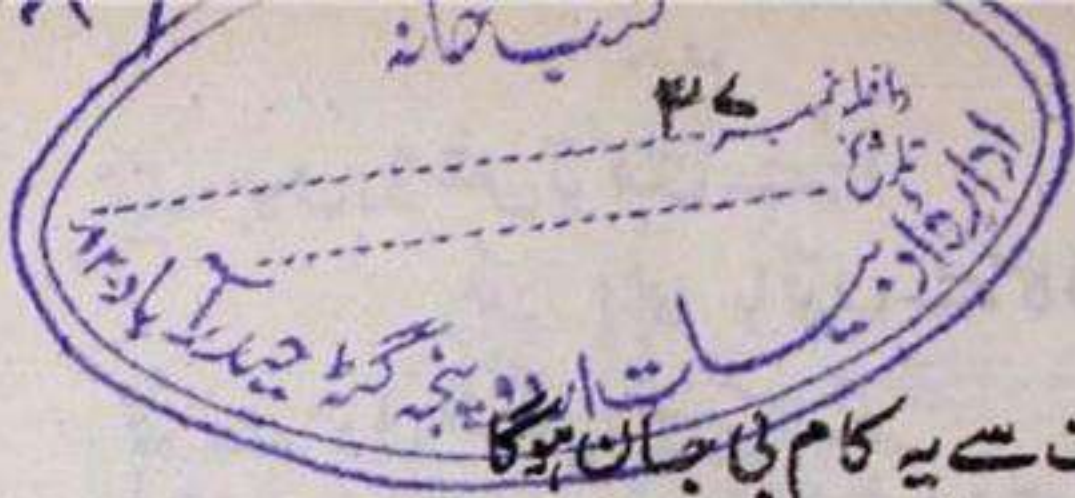 کتب خانہ
داخلہ نمبر ۳۷
تاریخ
ادارۂ ادبیات اردو پنجہ گٹہ حیدرآباد۔۸۲
سے یہ کام بی جان ہوگا